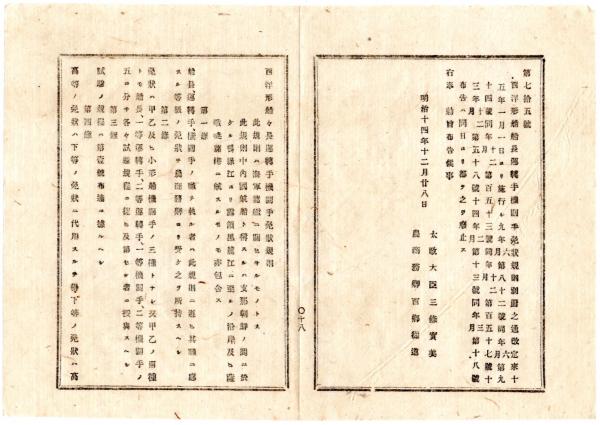 第七拾五號
西洋形船船長運轉手機關手免狀規則別冊之通改定來十
五年一月一日ヨリ施行シ九年六月第八十二號同年六月第九
十四號同年十二月第百五十三號同年十二月第百五十七號十
三年十二月第五十八號十四年二月第十三號同年三月第十八號
布告ハ同日ヨリ都テ之ヲ廢止ス
右奉　勅旨布告候事
明治十四年十二月廿八日
太政大臣三條實美
農商務卿西鄕從道
〇十八
西洋形船々長運轉手機關手免狀規則
此規則ハ海軍諸艦ニ關セサルモノトス
此規則中內國航船ト稱スルハ支那朝鮮ノ間ニ於
テハ鴨綠江ヨリ露領黑龍江ニ至ルノ沿岸及ヒ薩
哈嗹海岸ニ航スルモノモ亦包含ス
第一條
船長、運轉手、機關手ノ職ヲ執ル者ハ此規則ニ遵ヒ其職ニ應
スル等級ノ免狀ヲ農商務卿ヨリ受ケ之ヲ所持スヘシ
第二條
免狀ハ甲乙及ヒ小形船機關手ノ三種トナシ又甲乙ノ兩種
トモ船長、一等運轉手、二等運轉手、一等機關手、二等機關手ノ
五ニ分チ各々試驗規程ニ從ヒ及第セル者ニ授與スヘシ
第三條
試驗ノ規程ハ第壹號布達ニ據ルヘシ
第四條
高等ノ免狀ハ下等ノ免狀ニ代用スルヲ得下等ノ免狀ハ高